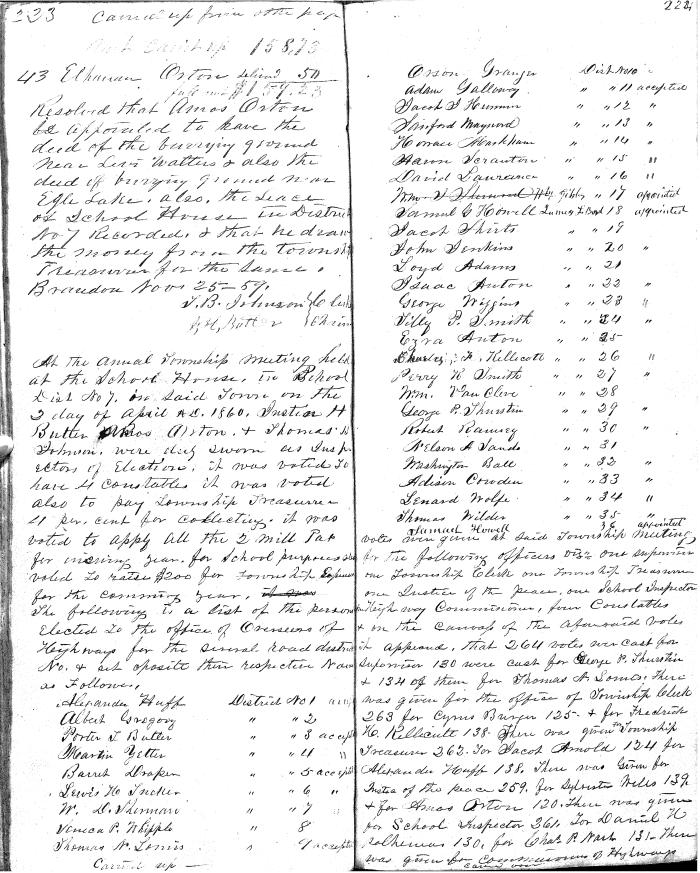 223 Carried up from other page
Am't Carried up 158,73
43 Elkanan Orton 50
$159.23
Resolved that Amos Orton
be appointed to have the
deed of the burying ground
near Levi Watters & also the
deed of burying ground near
Egle Lake. also, the Leace
of School House in District
No 7 Recorded, & that he draw
the money from the township
Treasurer for the Same.
Brandon Nov's 25-59.
T. B. Johnson Clerk
At the annual Township meeting held
at the School House, in School
Dist No 7. in said Town on the
2 day of April A.D. 1860, Justin H
Butler Amos Orton, & Thomas B
Johnson, were duly sworn as Insp
ectors of Election, it was voted to
have 4 constables it was voted
also to pay Township Treasurer
4 per. cent for collecting. it was
voted to apply all the 2 mill Tax
for insuing year, for School purposes
voted to raise $200 for Township Expenses
for the comming year, it was
The following is a list of the persons
Elected to the office of Overseers of
Highways for the several road district
No. & set oposite their respective Names
as Follows,
Alexander Huff District No 1
Albert Gregory " " 2
Porter T Butler " " 3 accept
Martin Yetter " " 4 "
Barret Draper " " 5 accept
Lewis H Tucker " " 6 "
W. D. Sherman " " 7 "
Seneca P. Whipple " 8
Thomas N. Lomis " 9 accepted
Carried up —
224
Orson Granger Dist No 10
Adam Galloway " " 11 accepted
Jacob J Hummer " " 12 "
Sanford Maynord " " 13 "
Horrace Markham " " 14 "
Aaron Scranton " " 15 "
David Laurance " " 16 "
Wm Gibbs " 17 appointed
Samuel C Howell 18 appointed
Jacob Shirts " " 19
John Jenkins " " 20 "
Loyd Adams " " 21
Isaac Anton " " 22 "
George Wiggins " " 23 "
Tilly P. Smith " " 24 "
Ezra Anton " " 25
Charles F. Kellicott " " 26 "
Perry H Smith " " 27 "
Wm. Van Cleve " " 28
George P. Thurstin " " 29 "
Robert Ramsey " " 30 "
Nelson A Sands " " 31
Washington Ball " " 32 "
Adison Cowden " " 33 "
Lenard Wolfe " " 34 "
Thomas Wilder " " 35 "
Samuel Howell 36 appointed
votes were given at said Township Meeting
for the following officers viz one supervisor
one Township Clerk one Township Treasurer
one Justice of the peace, one School Inspector
one High way Commissioner, four Constables
& on the canvass of the aforesaid votes
it appeard, that 264 votes were cast for
supervisor 130 were cast for George P. Thurstin
& 134 of them for Thomas N. Lomis, There
was given for the office of Township Clerk
263 for Cyrus Burger 125- & for Fredrick
H. Kellicutt 138. There was given Township
Treasurer 262. For Jacob Arnold 124 for
Alexander Huff 138. There was Given for
Justice of the peace 259. for Sylvester Wells 139
& for Amos Orton 120. There was given
for School Inspector 261. For Daniel H
Polhemus 130, for Chas P. Nash 131- There
was given for Commissioners of Highways
carried over